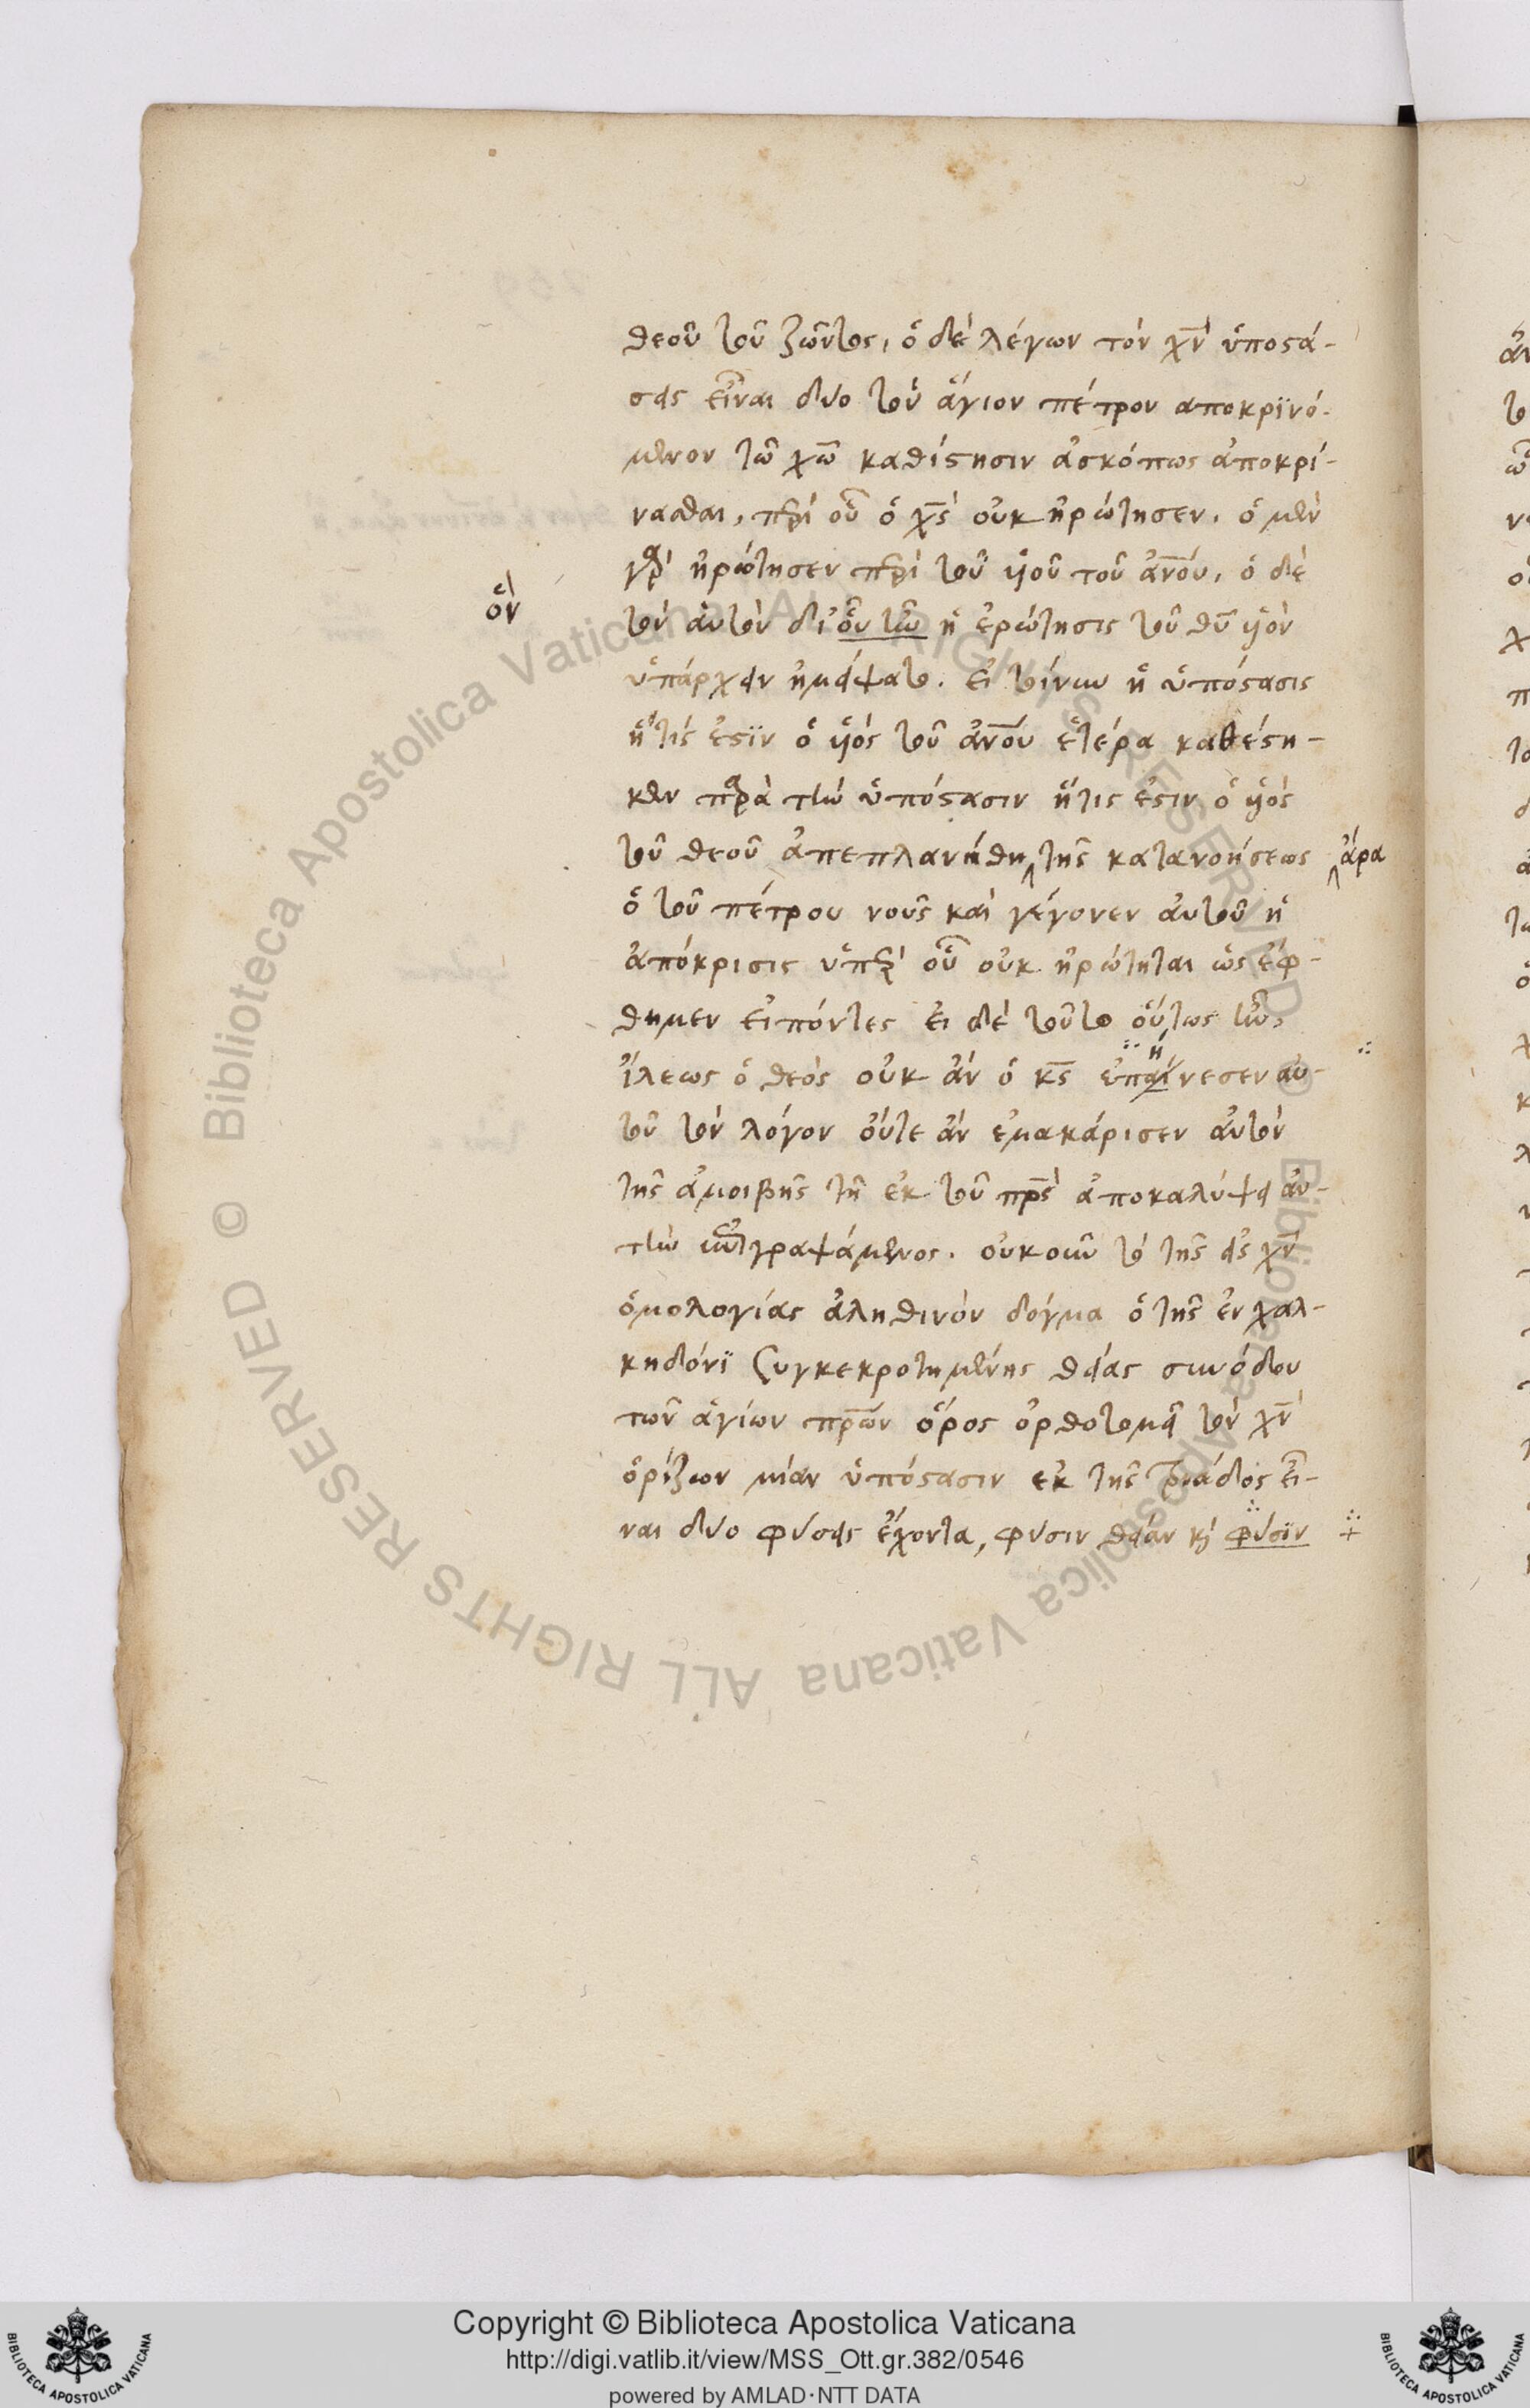 θεοῦ τοῦ ζῶντος, ὁ δὲ λέγων τὸν χν̅ ὑποστά-
σεις εἶναι δύο τὸν ἅγιον πέτρον αποκρϊνό-
μενον τῶ χω̅ καθίστησιν ἀσκόπως ἀποκρί-
νασθαι, περὶ οὗ ὁ χς̅ οὐκ ἠρώτησεν. ὁ μὲν
γὰρ ἠρώτησεν περὶ τοῦ υἱοῦ τοῦ ἀνο̅υ, ὁ δὲ
ὃν
τὸν ἀυτὸν δι' ὃν ἦν ἡ ἐρώτησις τοῦ θυ̅ υἱὸν
ὑπάρχειν ἠμείψατο. εἰ τοίνυν ἡ ὑπόστασις
ἥτις ἐστϊν ὁ υἱός τοῦ ἀνο̅υ ἑτέρα καθέστη-
κεν παρὰ τὴν ὑπόστασιν ἥτις ἐστιν ὁ υἱὸς
τοῦ θεοῦ ἀπεπλανήθη τῆς κατανοήσεως ἄρα
ὁ τοῦ πέτρου νοῦς καὶ γέγονεν ἀυτοῦ ἡ
ἀπόκρισις ὑπὲρ οὗ οὐκ ἠρώτηται ὡς ἔφ-
θημεν εἰπόντες εἰ δὲ τοῦτο οὕτως ἦν,
ἵλεως ὁ θεὸς οὐκ ἂν ὁ κς̅ ἐπαίνεσεν αὐ- ή
τοῦ τὸν λόγον οὔτε ἂν ἐμακάρισεν ἀυτὸν
τῆς ἀμοιβῆς τῇ ἐκ τοῦ πρς̅ ἀποκαλύψει ἀυ-
τὴν ἐπιγραψάμενος. οὐκοῦν τὸ τῆς εἰς χν̅
ὁμολογίας ἀληθινὸν δόγμα ὁ τῆς ἐν χαλ-
κηδόνϊ συγκεκροτημένης θείας συνόδου
τῶν ἁγίων πρω̅ν ὅρος ὀρθοτομεῖ τὸν χν̅
ὁρίζων μίαν ὑπόστασιν εκ τῆς τριάδος εἶ-
ναι δύο φύσεις ἔχοντα, φύσιν θείαν κὶ φύσϊν
Copyright © Biblioteca Apostolica Vaticana
http://digi.vatlib.it/view/MSS_Ott.gr.382/0546
powered by AMLAD·NTT DATA
BIBLIOTECA APOSTOLICA VATICANA
BIBLIOTECA APOSTOLICA VATICANA
© Biblioteca Apostolica Vaticana ALL RIGHTS RESERVED
© Biblioteca Apostolica Vaticana ALL RIGHTS RESERVED